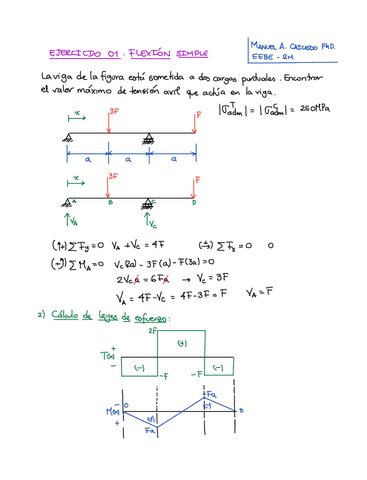 EJERCICIO 01: FLEXIÓN SIMPLE
MANUEL A. CAICEDO PhD.
EEBE - RM
La viga de la figura está sometida a dos cargas puntuales. Encontrar
el valor máximo de tensión axil que actúa en la viga.
|σ^T_adm| = |σ^C_adm| = 250MPa
x 3F F
a a a
x 3F F
A B C D
V_A V_C
(↑+) ΣF_y = 0 V_A + V_C = 4F (→+) ΣF_x = 0 0
(+↺) ΣM_A = 0 V_C(2a) - 3F(a) - F(3a) = 0
2V_C a = 6Fa → V_C = 3F
V_A = 4F - V_C = 4F - 3F = F V_A = F
2) Cálculo de leyes de esfuerzo:
2F
+ (+)
T(x)
- (-) (-)
-F -F
-Fa
- 0 (-)
M(x) (+) 0
+ Fa